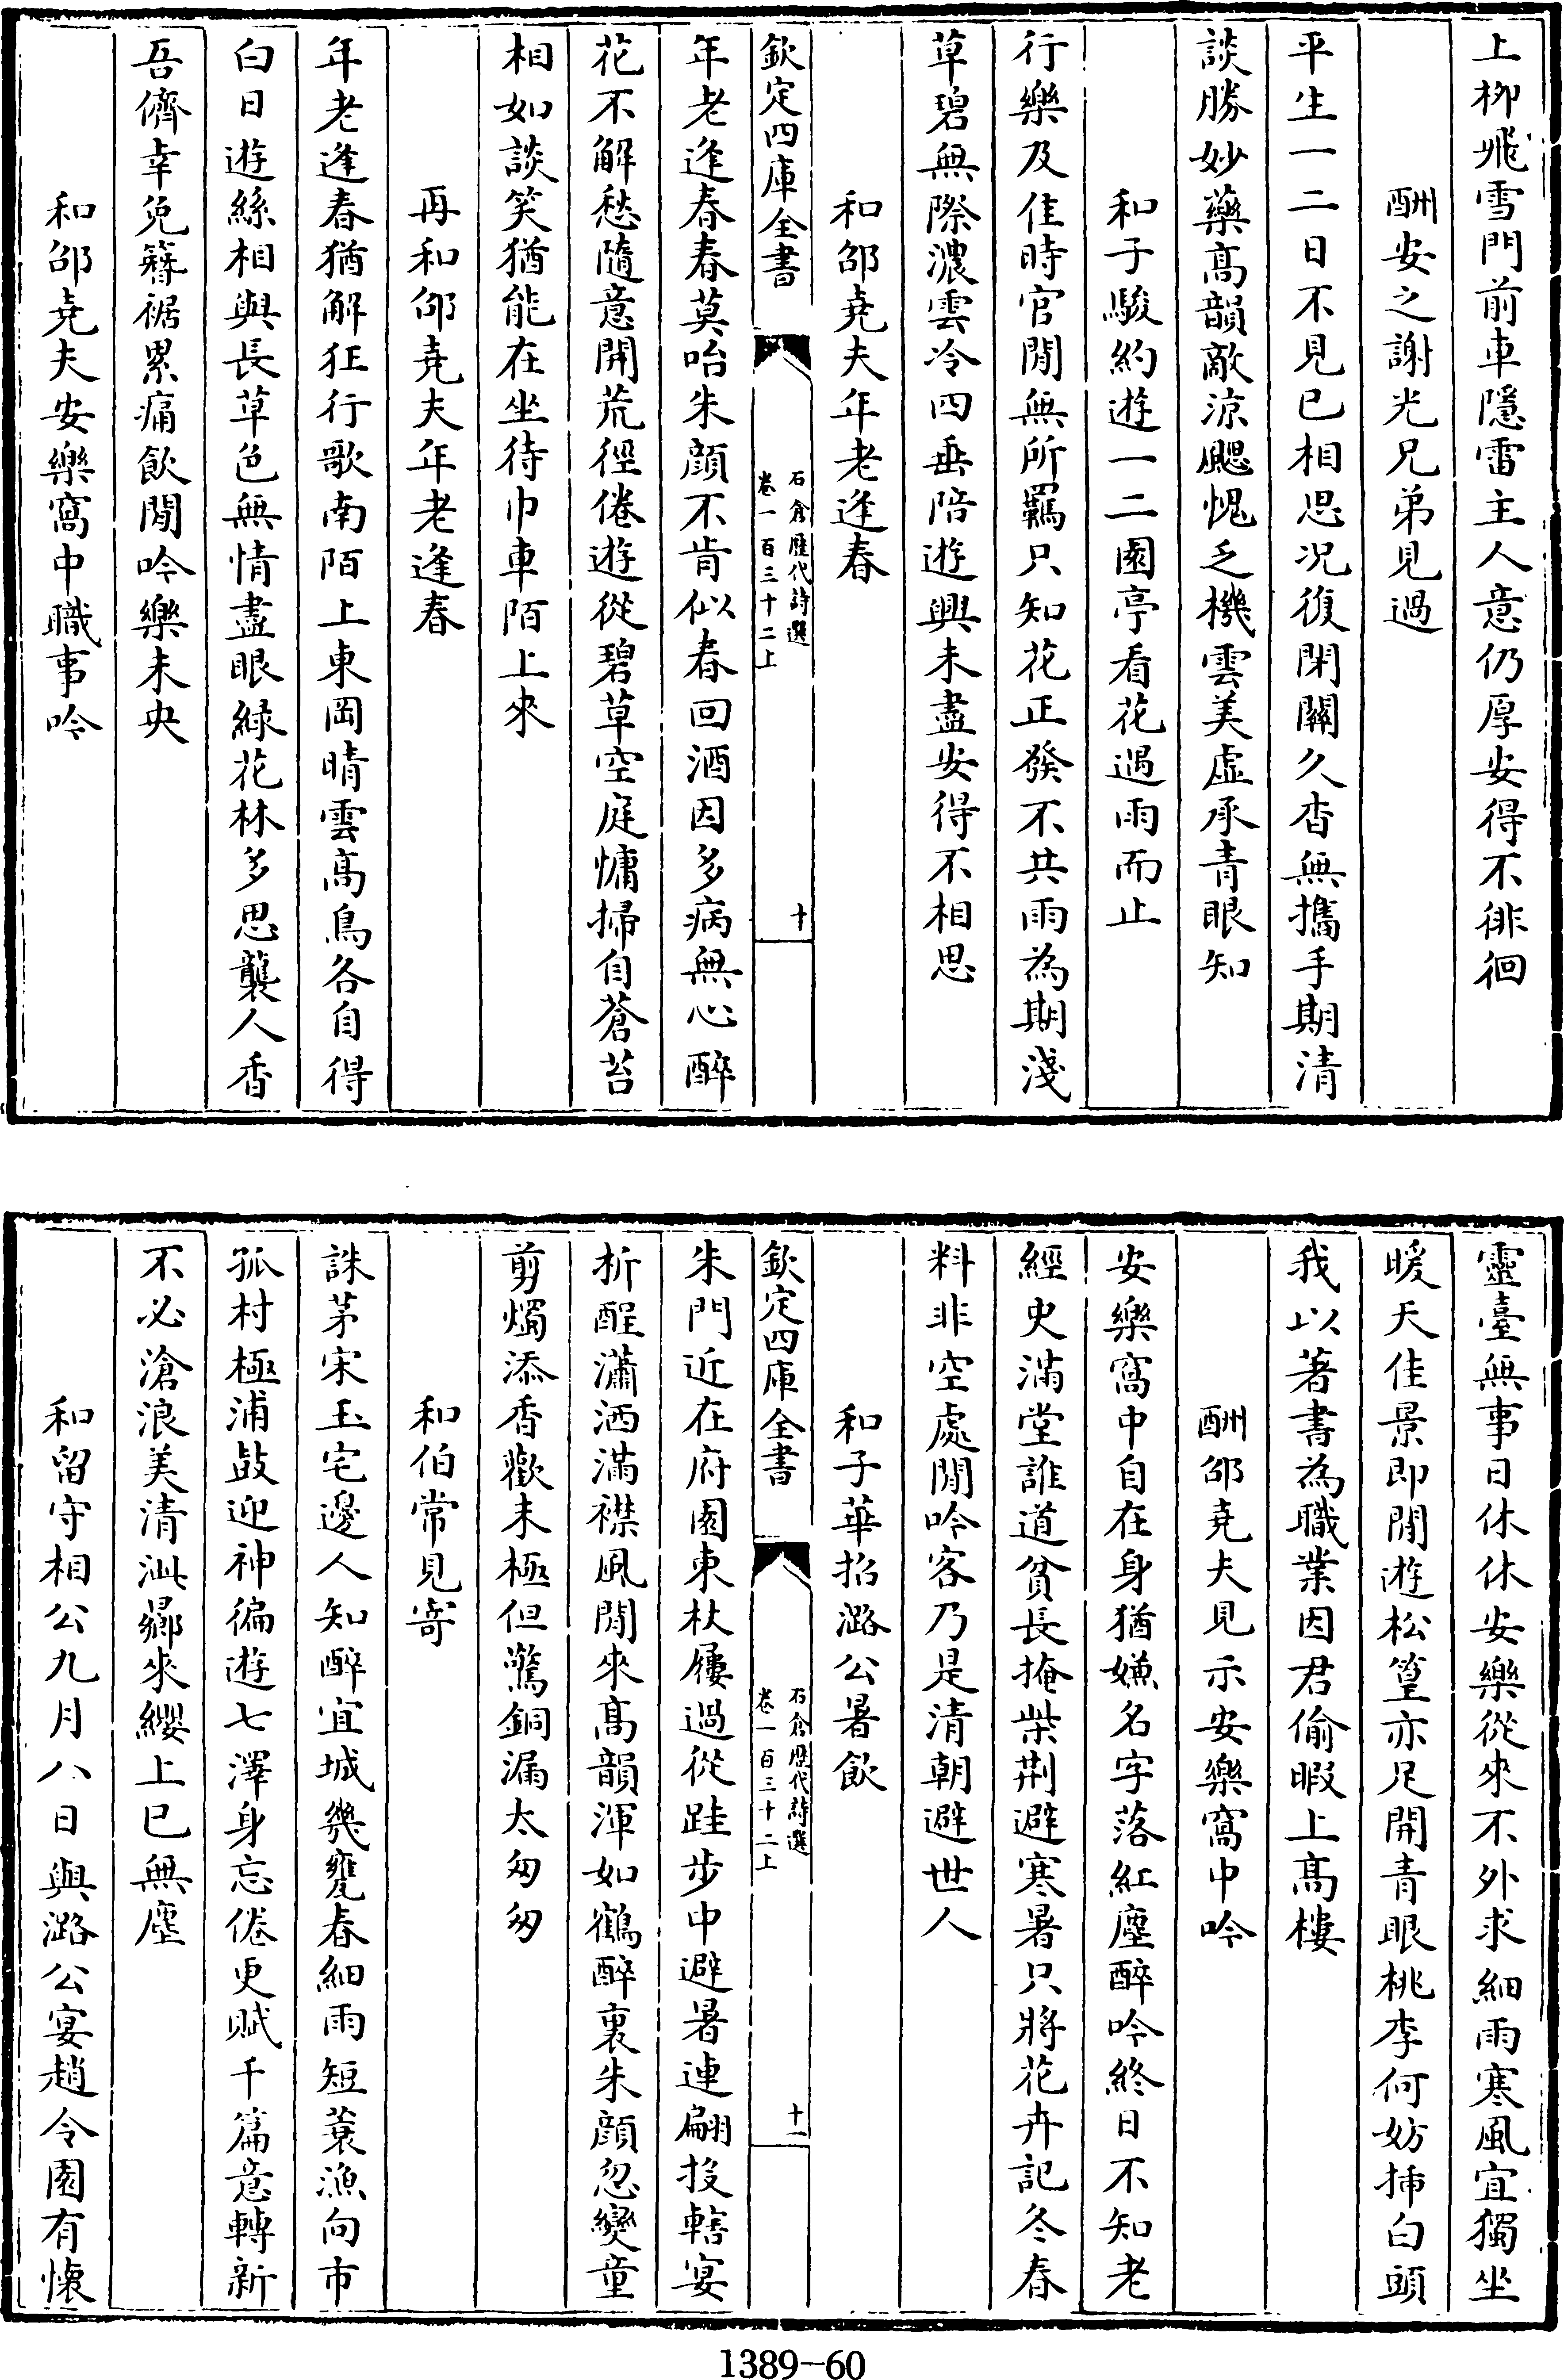 上柳飛雪門前車隱雷主人意仍厚安得不徘徊
酬安之謝光兄弟見過
平生一二日不見已相思况復閉關久杳無攜手期清
談勝妙藥髙韻敵凉颸愧乏機雲美虚承青眼知
和子駿約遊一二園亭看花遇雨而止
行樂及佳時官閒無所羈只知花正發不共雨為期淺
草碧無際濃雲冷四垂陪遊興未盡安得不相思
和邵堯夫年老逢春
欽定四庫全書
石倉歷代詩選
卷一百三十二上
十
年老逢春春莫咍朱顔不肯似春回酒因多病無心醉
花不解愁隨意開荒徑倦遊從碧草空庭慵掃自蒼苔
相如談笑猶能在坐待巾車陌上來
再和邵堯夫年老逢春
年老逢春猶解狂行歌南陌上東岡晴雲髙鳥各自得
白日遊絲相與長草色無情盡眼緑花林多思襲人香
吾儕幸免簪裾累痛飲閒吟樂未央
和邵堯夫安樂窩中職事吟
靈臺無事日休休安樂從來不外求細雨寒風宜獨坐
暖天佳景即閒遊松篁亦足開青眼桃李何妨插白頭
我以著書為職業因君偷暇上髙樓
酬邵堯夫見示安樂窩中吟
安樂窩中自在身猶嫌名字落紅塵醉吟終日不知老
經史滿堂誰道貧長掩柴荆避寒暑只將花卉記冬春
料非空處閒吟客乃是清朝避世人
和子華招潞公暑飲
欽定四庫全書
石倉歷代詩選
卷一百三十二上
十一
朱門近在府園東杖屨過從跬步中避暑連翩投轄宴
析酲瀟洒滿襟風閒來髙韻渾如鶴醉裏朱顔忽變童
剪燭添香歡未極但驚銅漏太匆匆
和伯常見寄
誅茅宋玉宅邊人知醉宜城幾甕春細雨短蓑漁向市
孤村極浦鼓迎神徧遊七澤身忘倦更賦千篇意轉新
不必滄浪美清泚歸來纓上已無塵
和留守相公九月八日與潞公宴趙令園有懷
1389-60